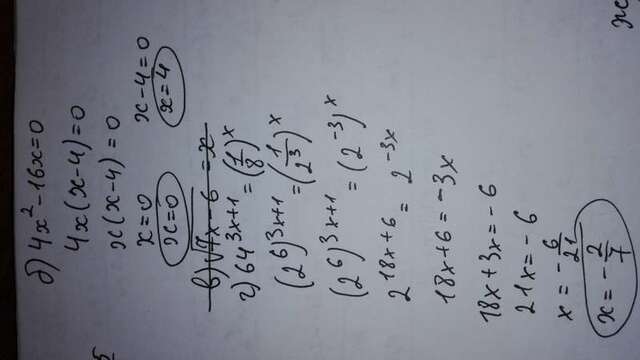 б) 4x² - 16x = 0
4x(x-4) = 0
x(x-4) = 0
x = 0   x-4 = 0
x = 0   x = 4
в) √7x - 6 = x
г) 64^(3x+1) = (1/8)^x
(2^6)^(3x+1) = (1/2^3)^x
(2^6)^(3x+1) = (2^-3)^x
2^(18x+6) = 2^(-3x)
18x+6 = -3x
18x+3x = -6
21x = -6
x = -6/21
x = -2/7